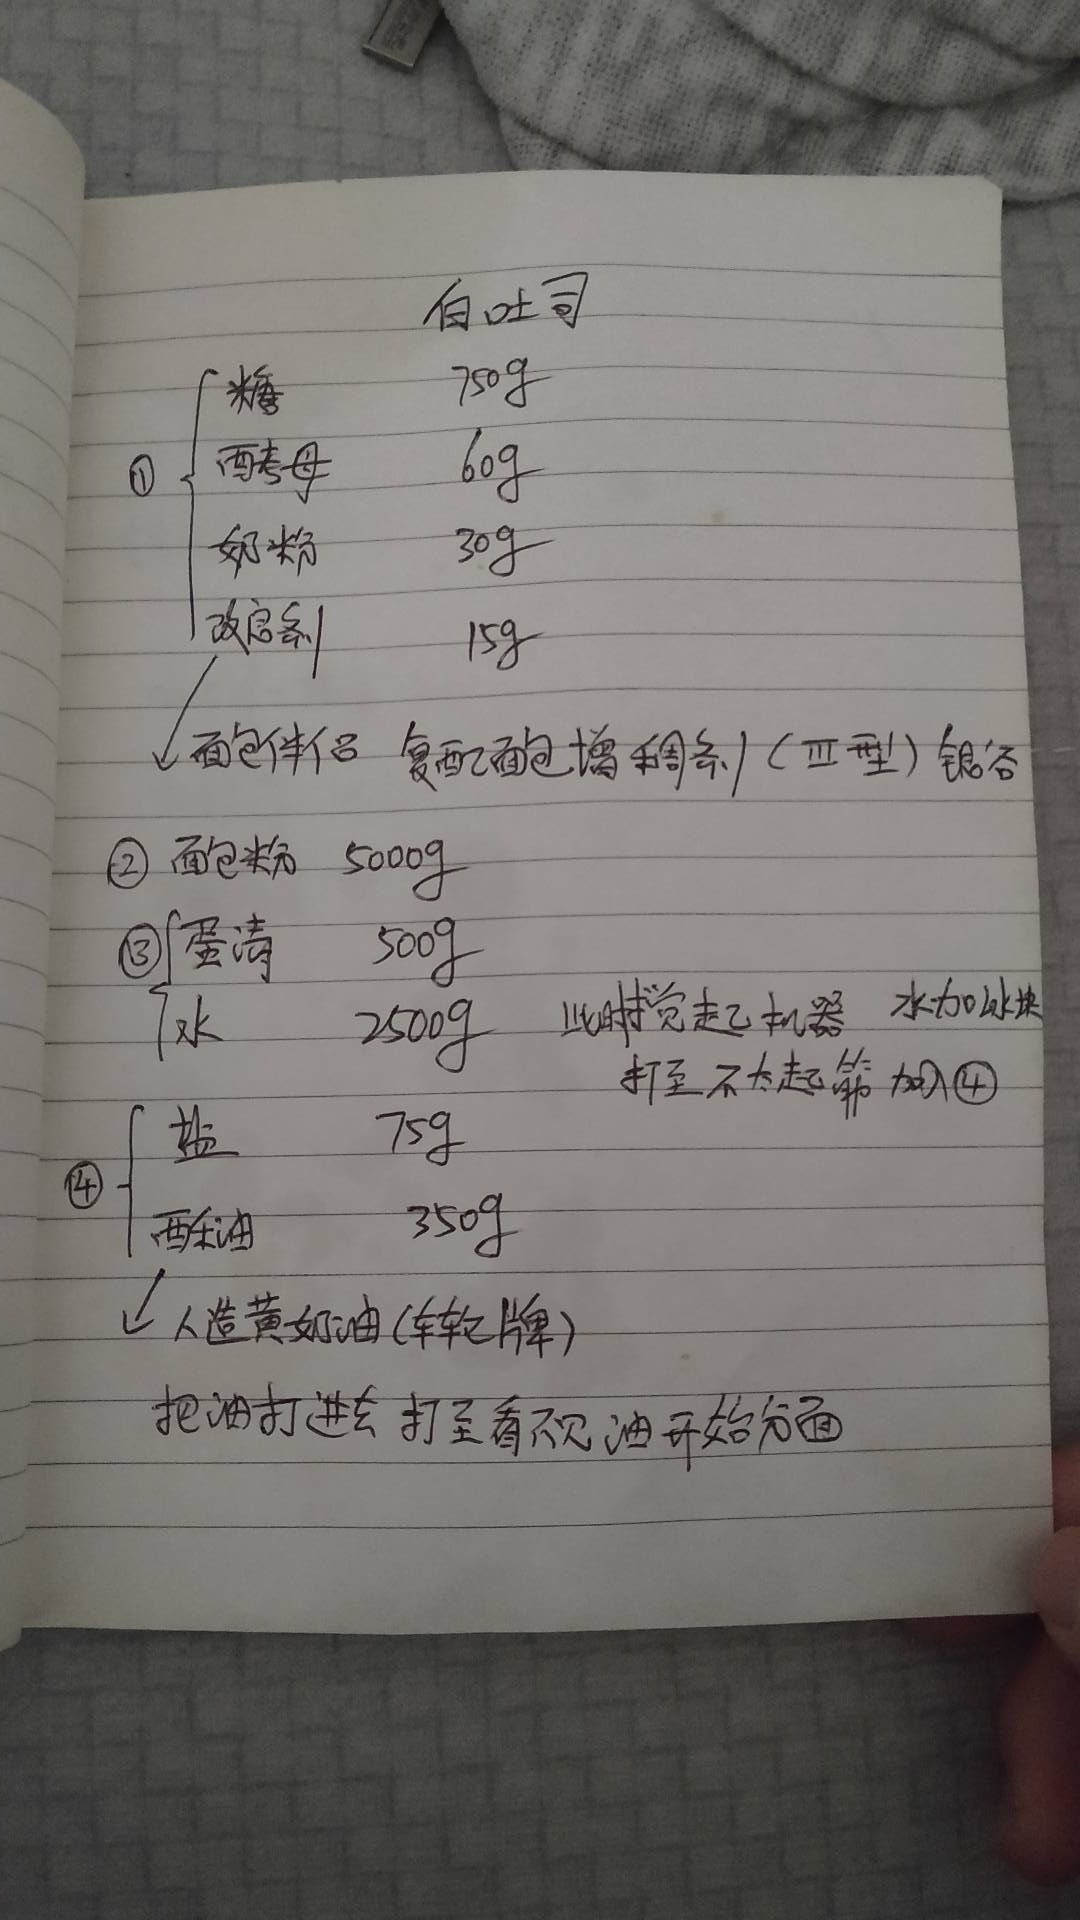 白吐司
糖 750g
① 酵母 60g
奶粉 30g
改良剂 15g
面包伴侣 复配面包增稠剂(III型)
② 面包粉 5000g
③ 蛋清 500g
水 2500g 此时搅起机器 水加冰块
打至不太起筋 加入④
盐 75g
④ 酥油 350g
人造黄奶油(车轮牌)
把油打进去 打至看不见油开始分面